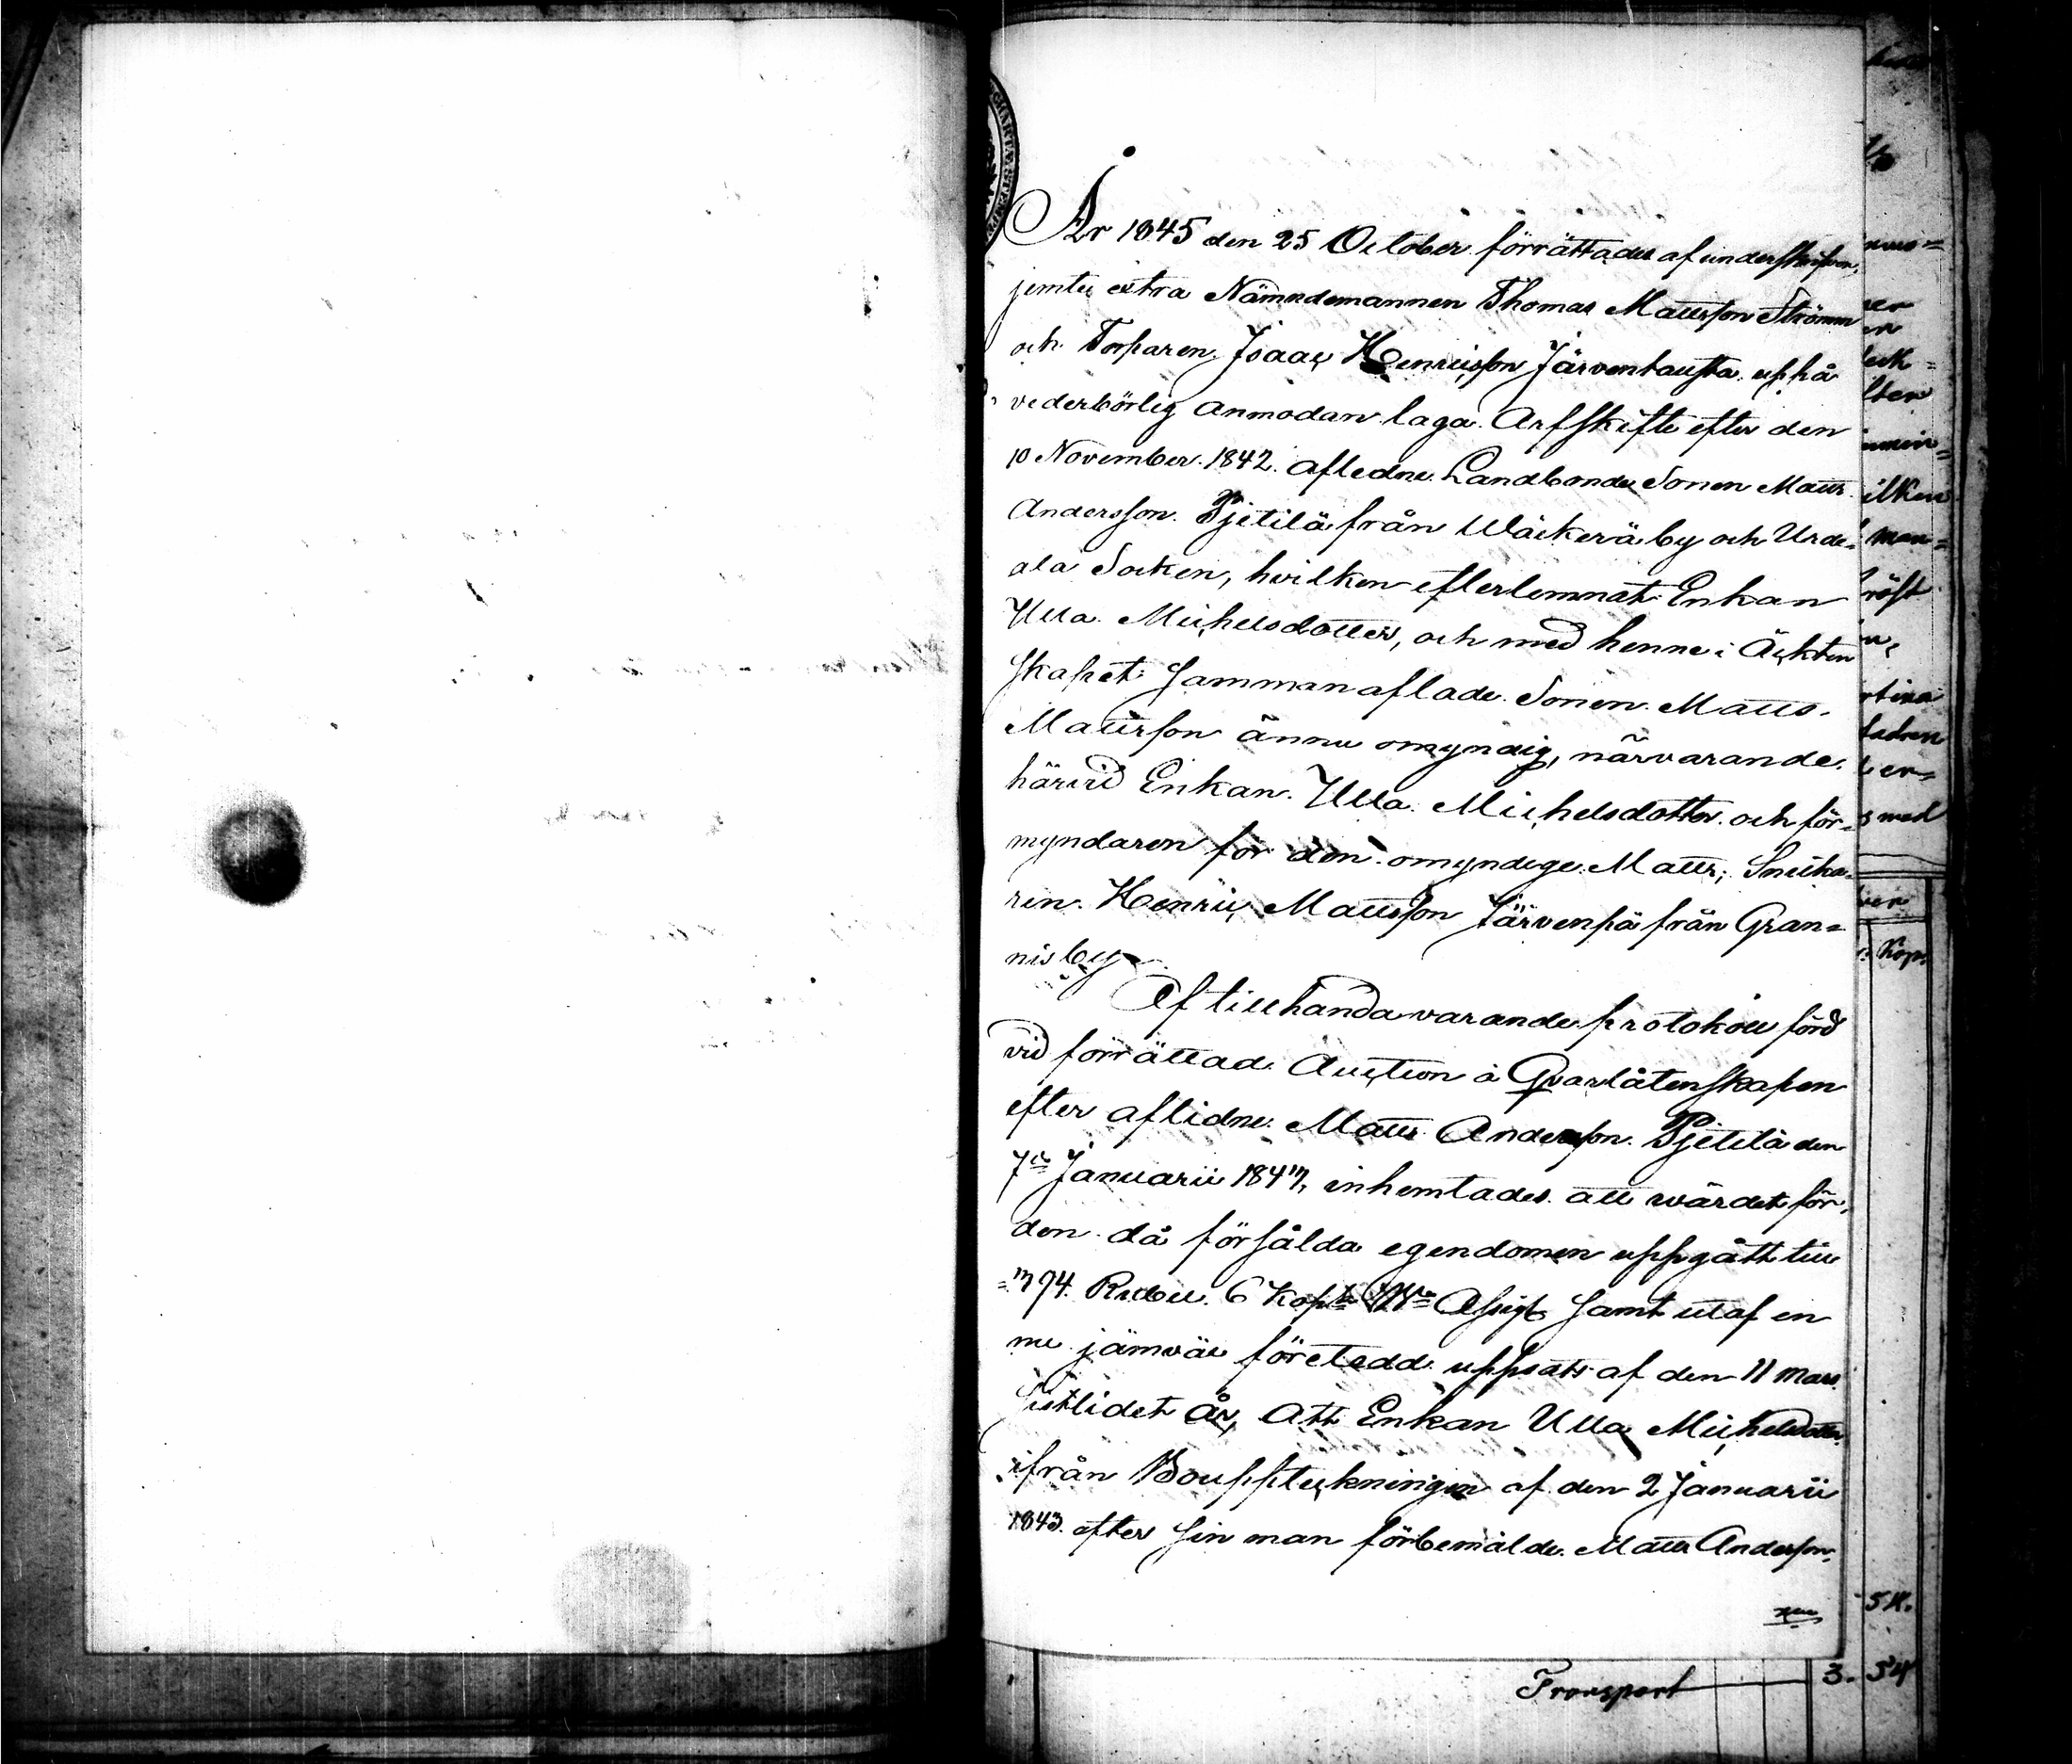 År 1845 den 25 October förrättades af underskrifven,
jemte extra Nämndemannen Thomas Mattsson Strömm
och Torparen Isaac Henricsson Järventausta uppå
vederbörlig anmodan laga Arfskifte efter den
10 November 1842 afledne Landbonde Sonen Matts
Andersson Pjetilä från Wäkerä by och Urdi-
ala Socken, hvilken efterlemnat Enkan
Ulla Michelsdotter, och med henne i Äckten
skapet sammanaflade Sonen Matts
Mattsson ännu omyndig, närvarande
härvid Enkan Ulla Michelsdotter och för-
myndaren för den omyndige Matts, Snicka-
ren Henric Mattsson Järvenpä från Gran-
nis by
Af tillhandavarande protokoll förd
vid förrättad Auction å Qvarlåtenskapen
efter aflidne Matts Andersson Pjetilä den
7de Januarii 1843, inhemtades att wärdet för
den då försålda egendomen uppgått till
394 Rubel 6 Kop Assigt samt utaf en
nu jämväl företedd uppsats af den 11 Mars
sistlidet år, att Enkan Ulla Michelsdotter
ifrån Bouppteckningen af den 2 Januarii
1843 efter sin man förbemälde Matts Andersson
Kop
54.
Transport 3. 54